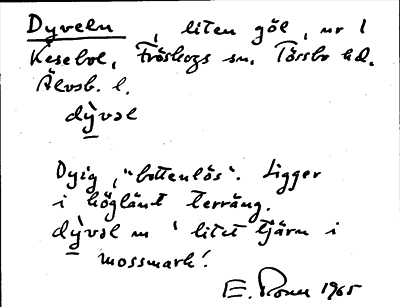 Dyveln, liten göl, nr 1
Kesebol, Fröskogs sn, Tössbo hd.
Älvsb. l.
dy̠vəl
Dyig, "bottenlös". Ligger
i höglänt terräng.
dy̠vəl m 'litet tjärn i
mossmark'.
E. 1965